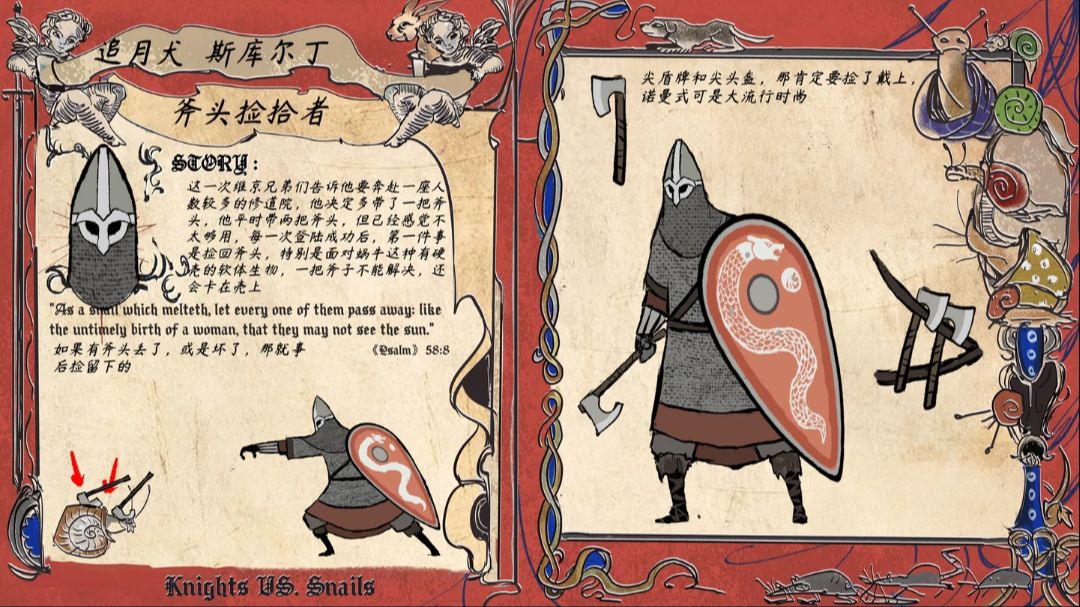 追月犬 斯库尔丁
斧头捡拾者
STORY:
这一次维京兄弟们告诉他要奔赴一座人
数较多的修道院，他决定多带了一把斧
头，他平时带两把斧头，但已经感觉不
太够用，每一次登陆成功后，第一件事
是捡回斧头，特别是面对蜗牛这种有硬
壳的软体生物，一把斧子不能解决，还
会卡在壳上
"As a snail which melteth, let every one of them pass away: like
the untimely birth of a woman, that they may not see the sun."
如果有斧头丢了，或是坏了，那就事
《Psalm》58:8
后捡留下的
Knights VS. Snails
尖盾牌和尖头盔，那肯定要捡了戴上，
诺曼式可是大流行时尚